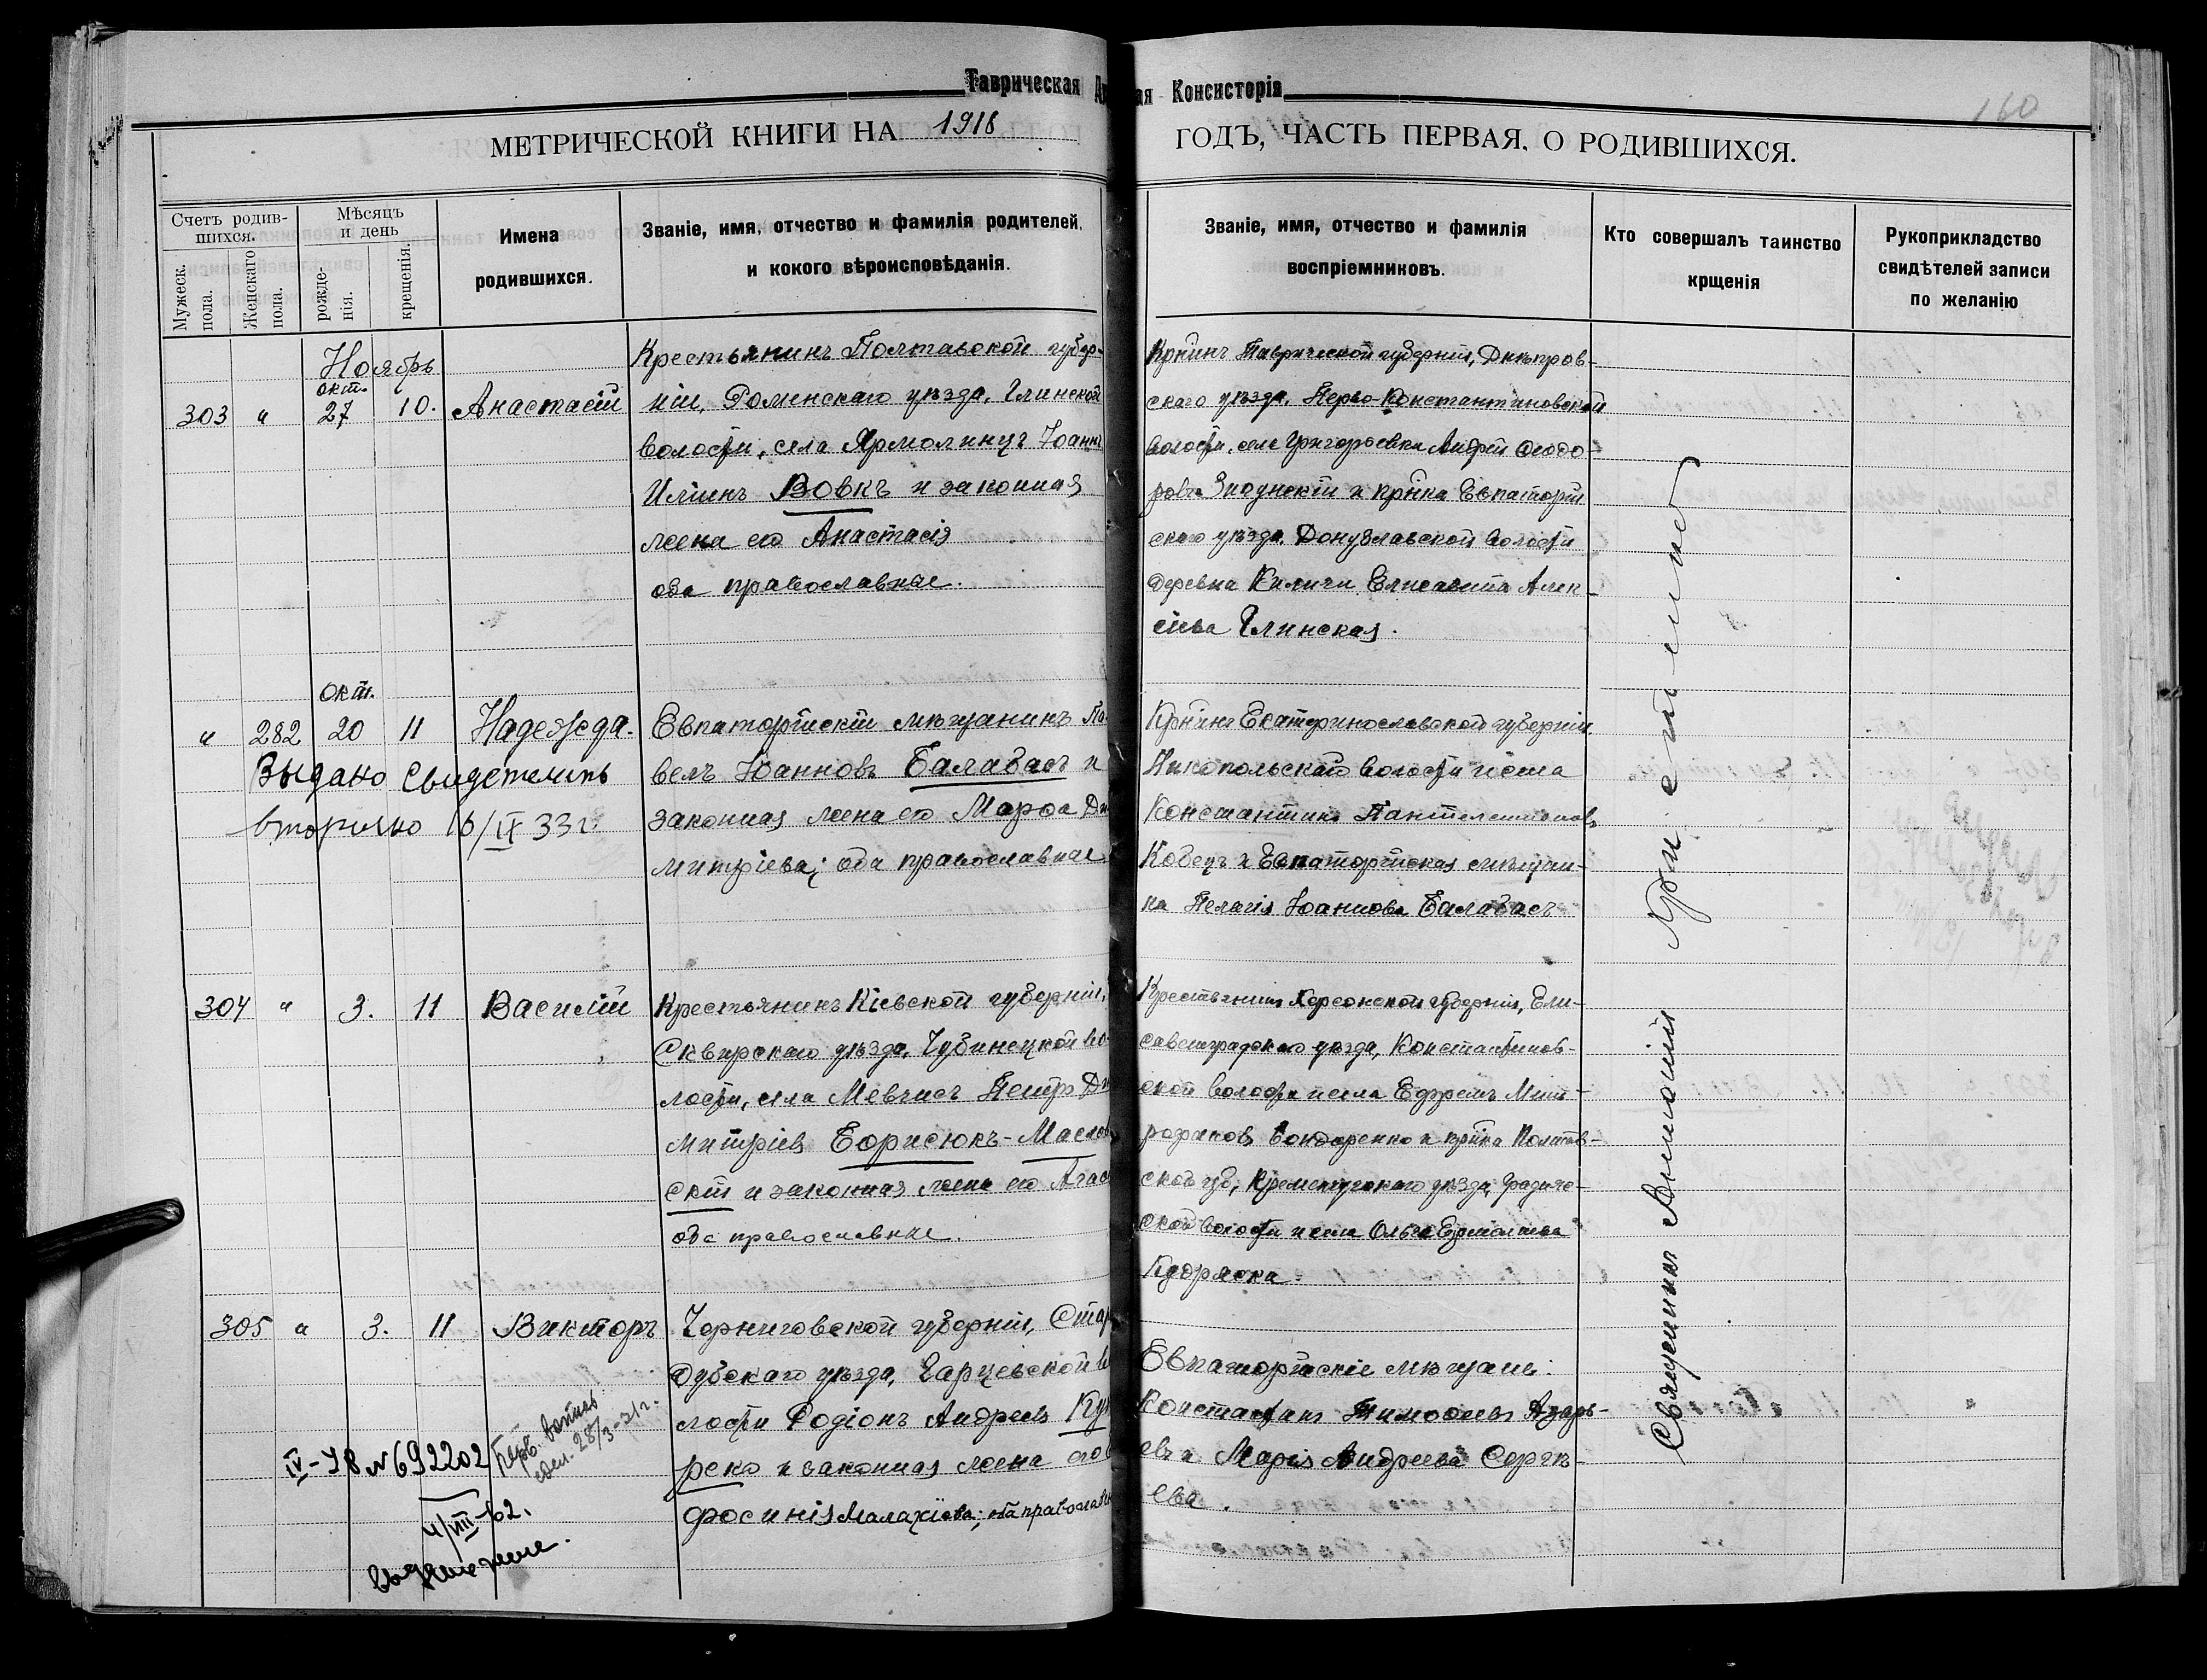 Таврическая
ая Консисторія
160
МЕТРИЧЕСКОЙ КНИГИ НА 1918
ГОДЪ, ЧАСТЬ ПЕРВАЯ, О РОДИВШИХСЯ.
Счетъ родив-
шихся.
Мужеск.
пола.
Женскаго
пола.
Мѣсяцъ
и день
рожде-
нія.
крещенія.
Имена
родившихся.
Званіе, имя, отчество и фамилія родителей,
и кокого вѣроисповѣданія.
Званіе, имя, отчество и фамилія
воспріемниковъ.
Кто совершалъ таинство
крщенія
Рукоприкладство
свидѣтелей записи
по желанію
Ноябрь
окт.
303 " 27 10. Анастасій
Крестьянинъ Полтавской губер-
ніи, Роменскаго уѣзда, Глинской
волости, села Ярмолинцъ Іоаннъ
Иліинъ Вовкъ и законная
жена его Анастасія
оба православные.
Кр-нинъ Таврической губерніи, Днѣпров-
скаго уѣзда, Перво-Константиновской
волости, села Григорьевки Андрей Ѳеодо-
ровъ и кр-нка Евпаторій
скаго уѣзда, Донузлавской волости
деревни Елисавета Алек-
сіева Глинская.
окт.
" 282 20 11 Надежда.
Выдано Свидетельств
вторично 16/IX 33 г.
Евпаторійскій мѣщанинъ Па-
велъ Іоанновъ Балабасъ и
законная жена его Марѳа Ди
митріева; оба православные.
Кр-нинъ Екатеринославской губерніи
Никопольскаго волости и села
Константинъ Пантелеимоновъ
Кобецъ и Евпаторійская мѣщан-
ка Пелагія Іоаннова Балабасъ
304 " 3. 11 Василій
Крестьянинъ Кіевской губерніи,
Сквирскаго уѣзда, Чубинецкой во-
лости, села Петръ Ди
митріевъ Борисюкъ-Маслов
скій и законная жена его Агаѳ
оба православные.
Крестьянинъ Херсонской губерніи, Ели-
саветградскаго уѣзда, Константинов-
ской волости и села Ефремъ Мит-
рофановъ Бондаренко и кр-нка Полтав-
ской губ., Кременчугскаго уѣзда,
ской волости и села Ольга Ермолаева
Кудряска.
305 " 3. 11 Викторъ
Черниговской губерніи, Стар
дубскаго уѣзда, во
лости Родіонъ Андреевъ Ку
реко и законная жена его Ев
фросинія Малахіева; оба православн
Евпаторійскіе мѣщане:
Константинъ Тимоѳеевъ Азарь-
евъ и Марія Андреева Сергѣ-
ева.
Перв. выпись
28/3-31 г.
IV-ЯВ №692202
4/VIII-62.
Священникъ Анатолій